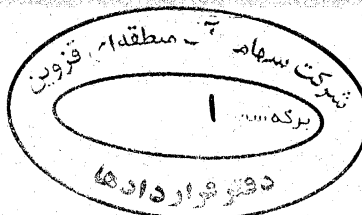 شرکت سهامی آب منطقه‌ای قزوین
برگه ۱
دفتر قراردادها